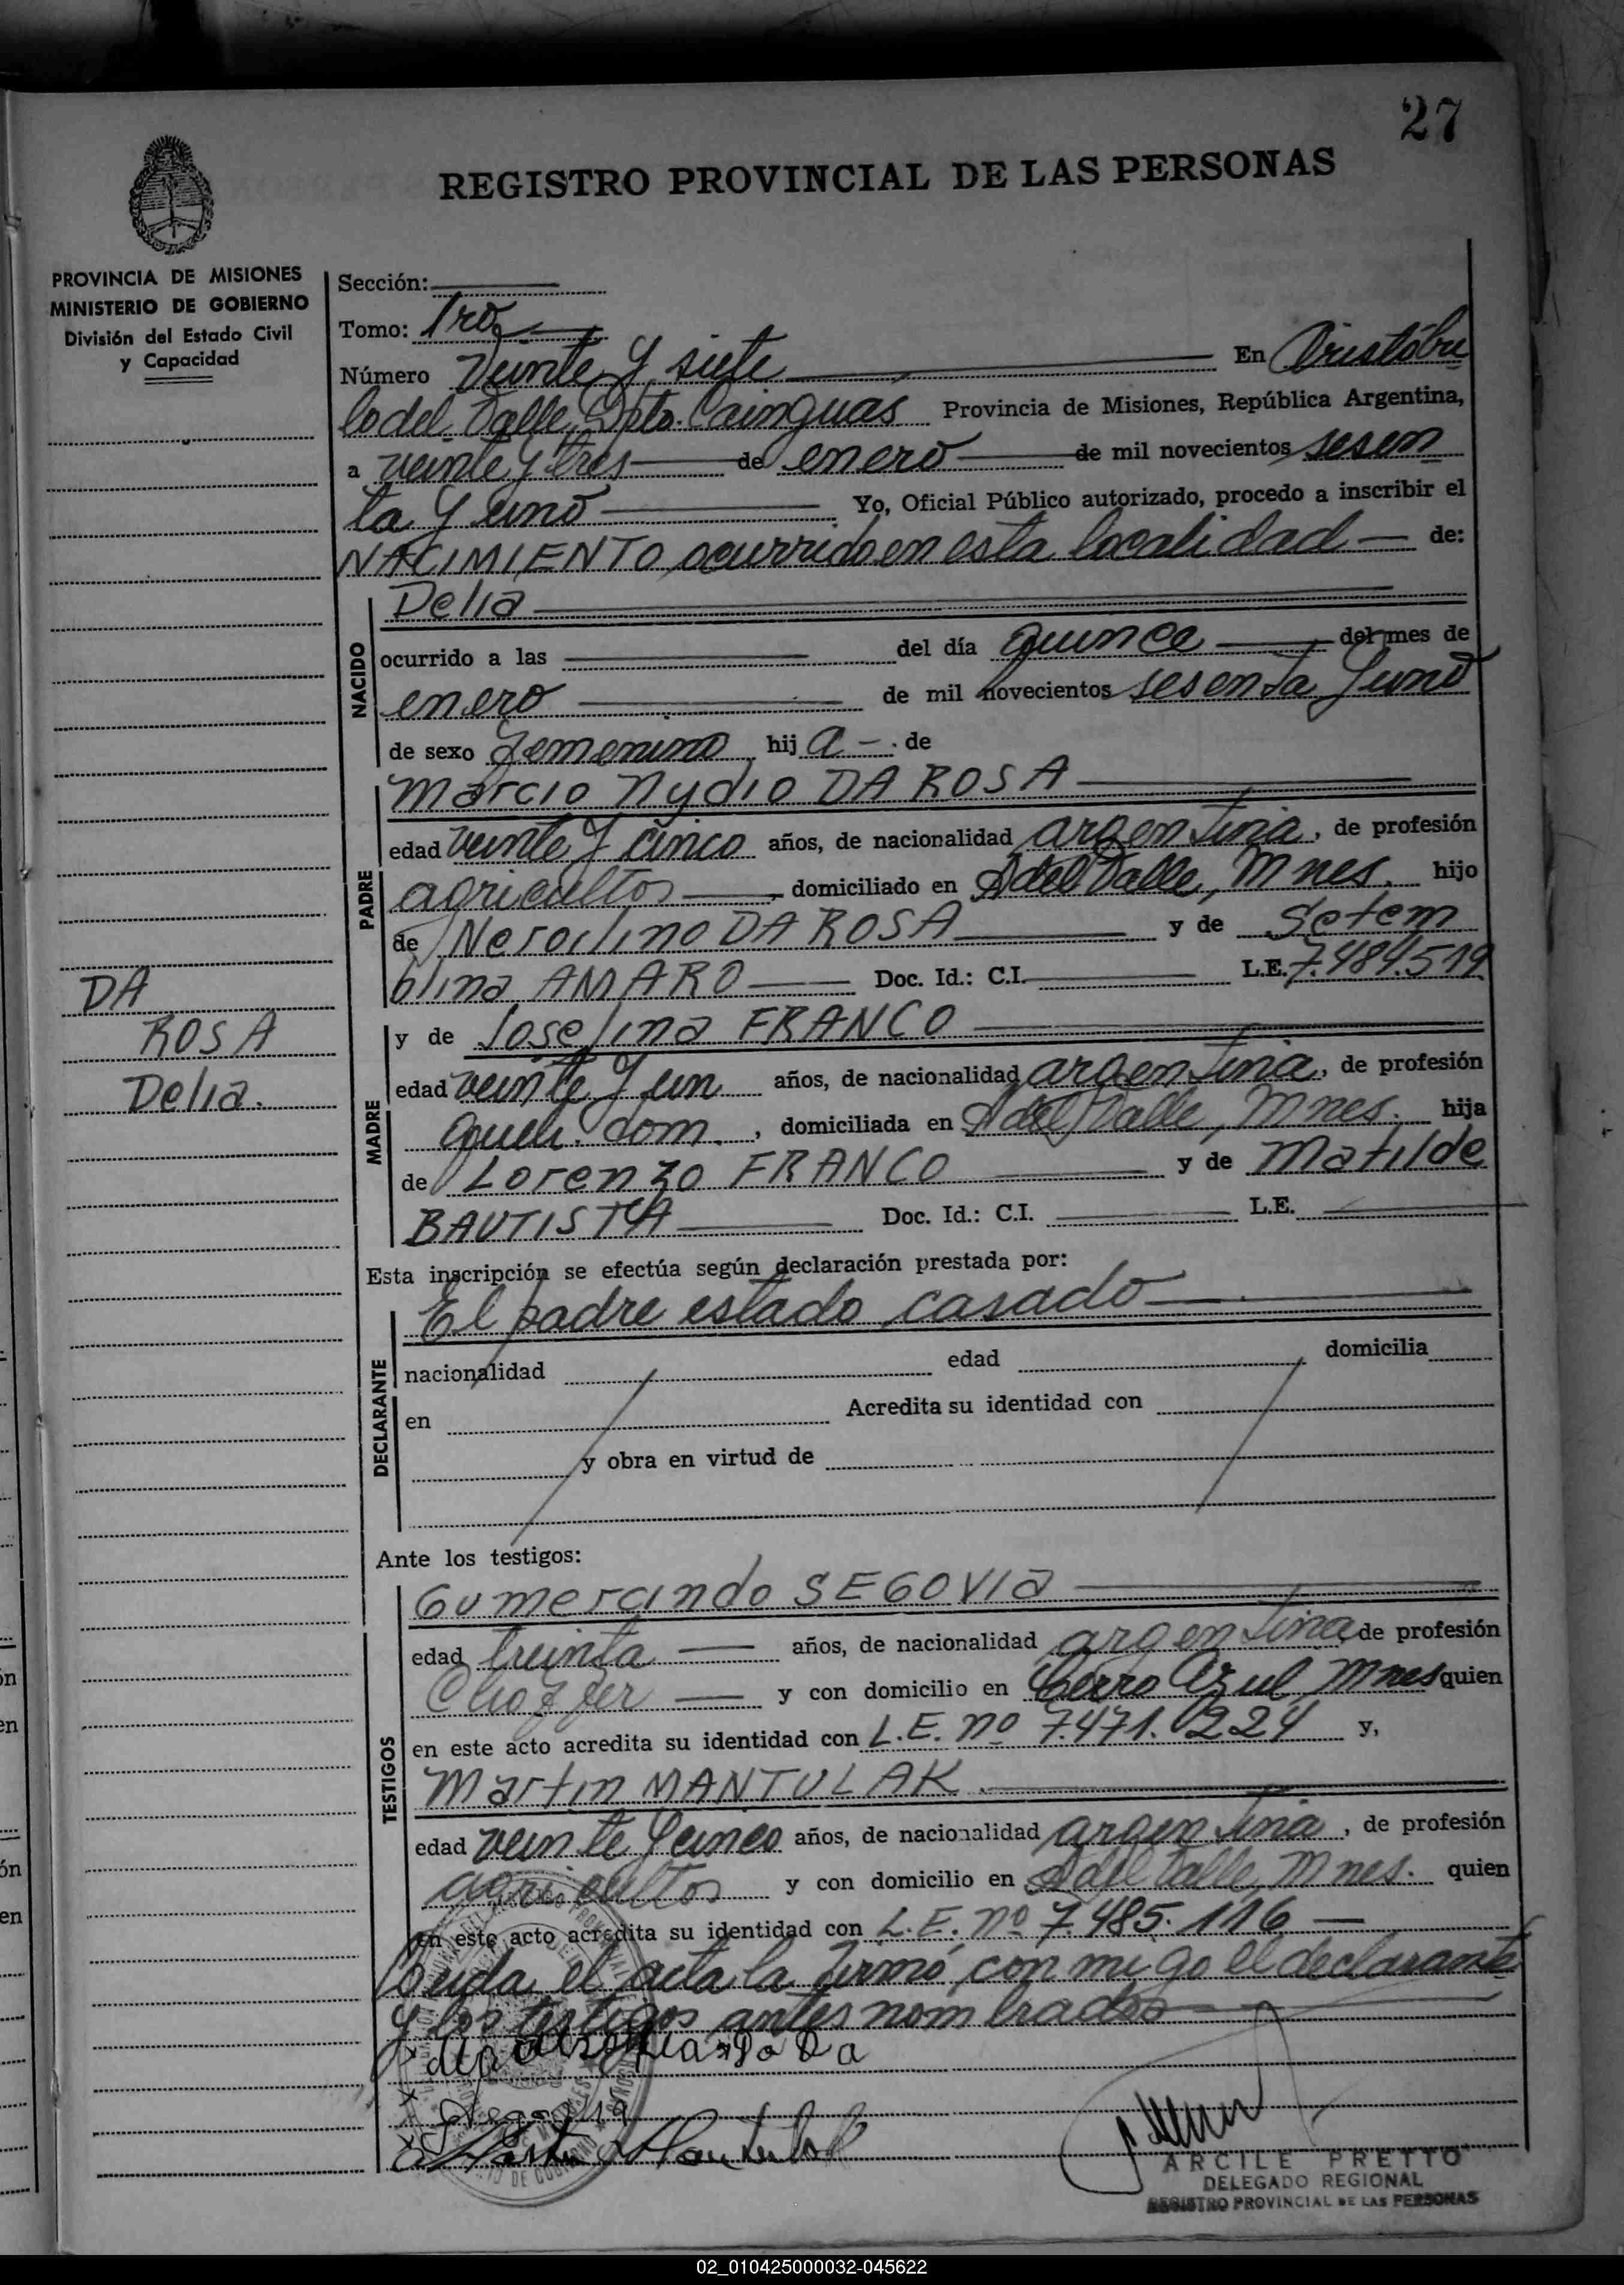 27
REGISTRO PROVINCIAL DE LAS PERSONAS
PROVINCIA DE MISIONES
MINISTERIO DE GOBIERNO
División del Estado Civil
y Capacidad
Sección:
Tomo: 1ro
Número Veinte y siete En Cristóbu
lo del Valle, Dpto. Cainguas Provincia de Misiones, República Argentina,
a veinte y tres de enero de mil novecientos sesen
ta y uno Yo, Oficial Público autorizado, procedo a inscribir el
NACIMIENTO ocurrido en esta localidad de:
NACIDO
Delia
ocurrido a las del día quince del mes de
enero de mil novecientos sesenta y uno
de sexo femenino hij a - . de
PADRE
Marcio Nydio DA ROSA
edad veinte y cinco años, de nacionalidad argentina, de profesión
agricultor, domiciliado en A. del Valle, Mnes. hijo
de Neroclino DA ROSA y de Setem
blina AMARO Doc. Id.: C.I. L.E. 7.484.519
DA
ROSA
Delia.
MADRE
y de Josefina FRANCO
edad veinte y un años, de nacionalidad argentina, de profesión
queh. dom., domiciliada en A. del Valle, Mnes. hija
de Lorenzo FRANCO y de Matilde
BAUTISTA Doc. Id.: C.I. L.E.
Esta inscripción se efectúa según declaración prestada por:
DECLARANTE
El padre estado casado
nacionalidad edad domicilia
en Acredita su identidad con
y obra en virtud de
Ante los testigos:
TESTIGOS
Gumercindo SEGOVIA
edad treinta años, de nacionalidad argentina de profesión
Choffer y con domicilio en Cerro Azul, Mnes quien
en este acto acredita su identidad con L.E. nº 7.471.224 y,
Martin MANTULAK.
edad veinte y cinco años, de nacionalidad argentina, de profesión
agricultor y con domicilio en A. del Valle, Mnes. quien
en este acto acredita su identidad con L.E. nº 7.485.116
Leida el acta la firmó con migo el declarante
y los testigos antes nombrados
Martin Mantulak
ARCILE PRETTO
DELEGADO REGIONAL
REGISTRO PROVINCIAL DE LAS PERSONAS
02_010425000032-045622